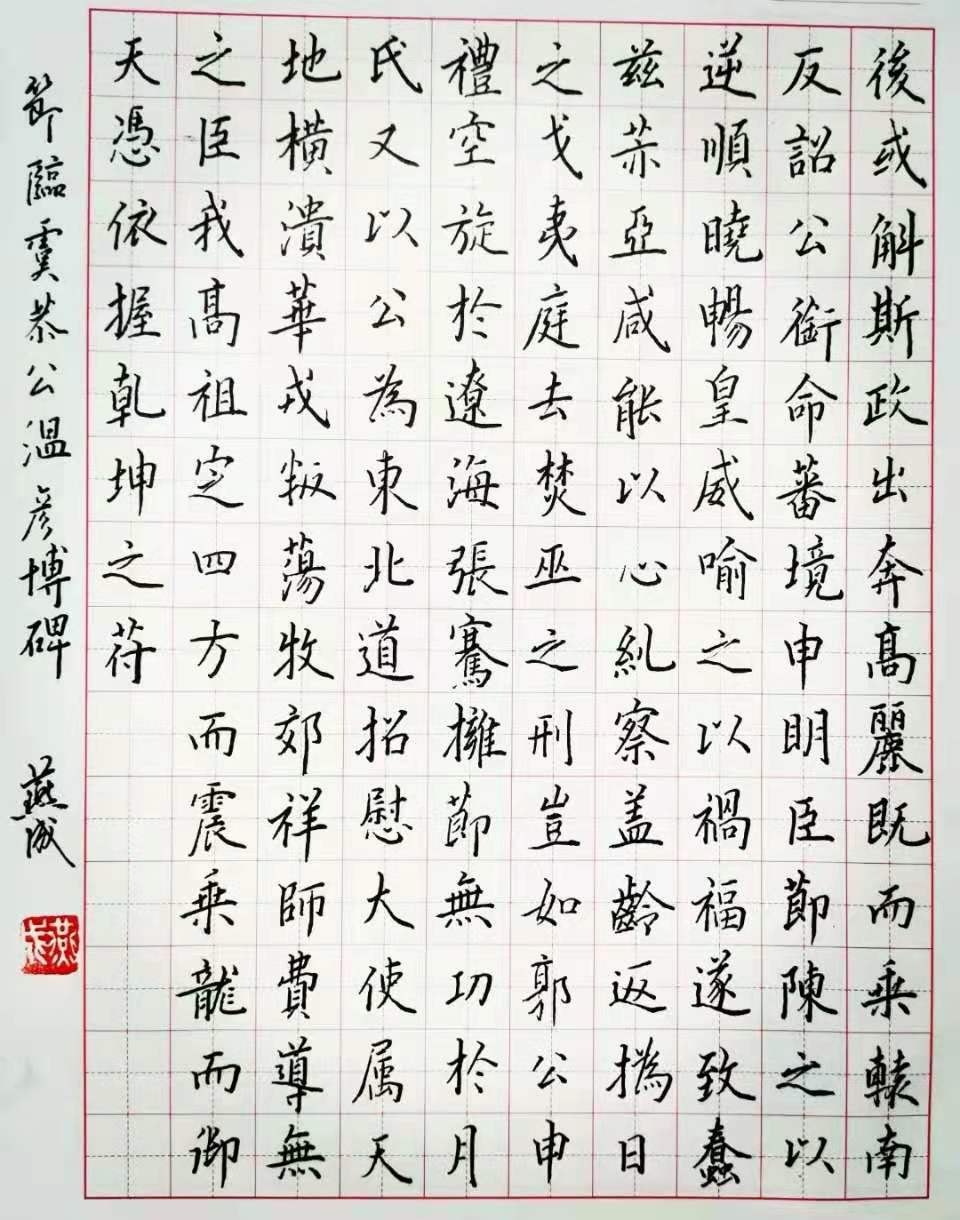 後或斛斯政出奔高麗既而乗轅南
反詔公銜命蕃境申明臣節陳之以
逆順曉暢皇威喻之以禍福遂致蠢
茲亞咸能以心糺察盖齡返撝日
之戈夷庭去焚巫之刑豈如郭公申
禮空旋於遼海張騫擁節無功於月
氏又以公為東北道招慰大使属天
地横潰華戎叛蕩牧郊祥師費導無
之臣我髙祖定四方而震乗龍而御
天憑依握乹坤之苻
節臨虞恭公温彦博碑 燕成
燕成